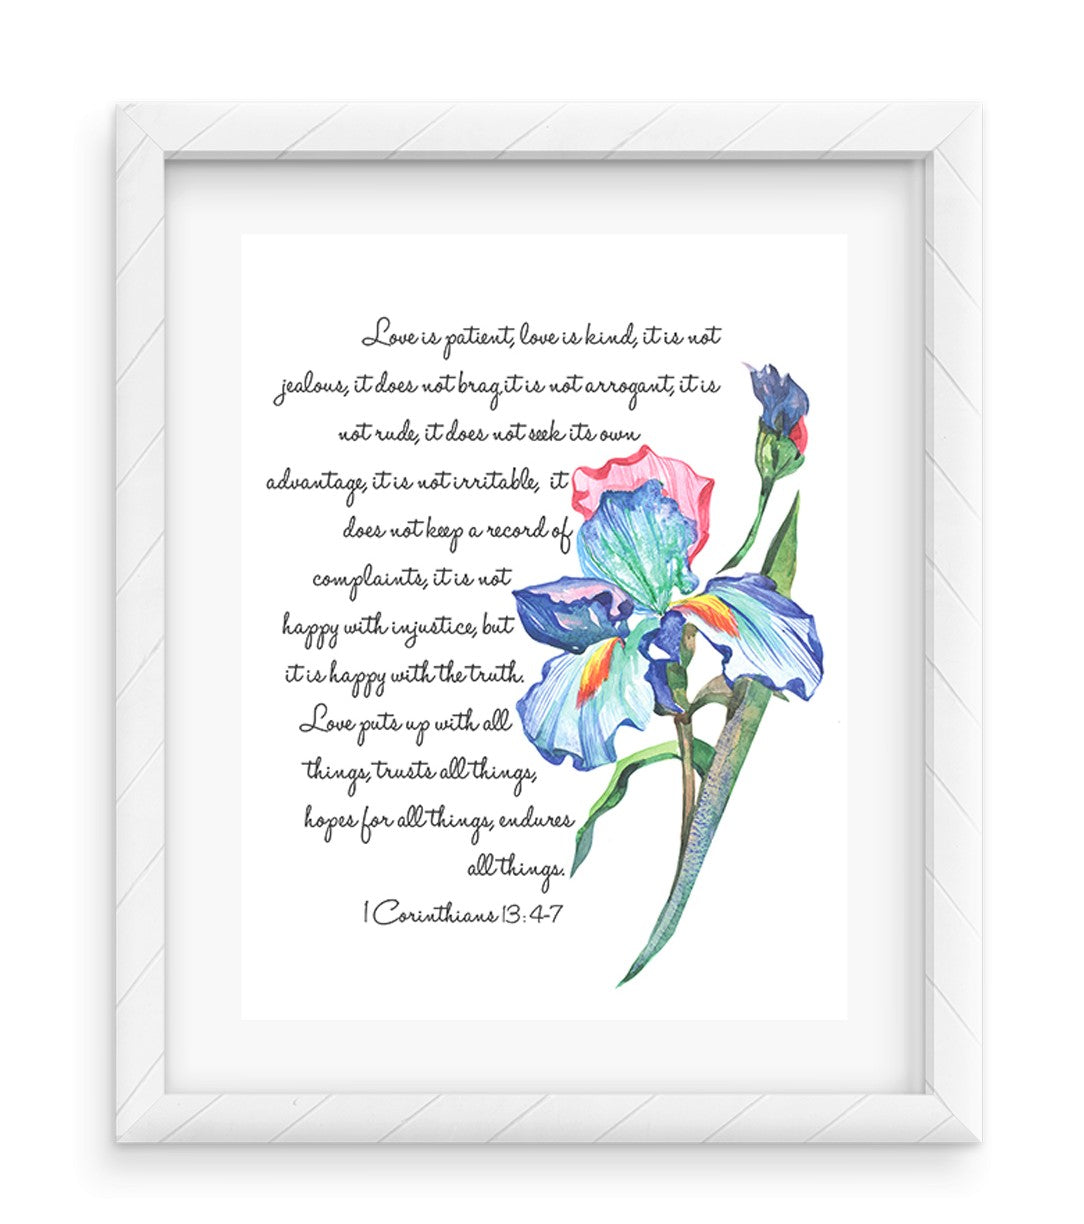 Love is patient, love is kind, it is not
jealous, it does not brag,it is not arrogant, it is
not rude, it does not seek its own
advantage, it is not irritable, it
does not keep a record of
complaints, it is not
happy with injustice, but
it is happy with the truth.
Love puts up with all
things, trusts all things,
hopes for all things, endures
all things.
1 Corinthians 13:4-7